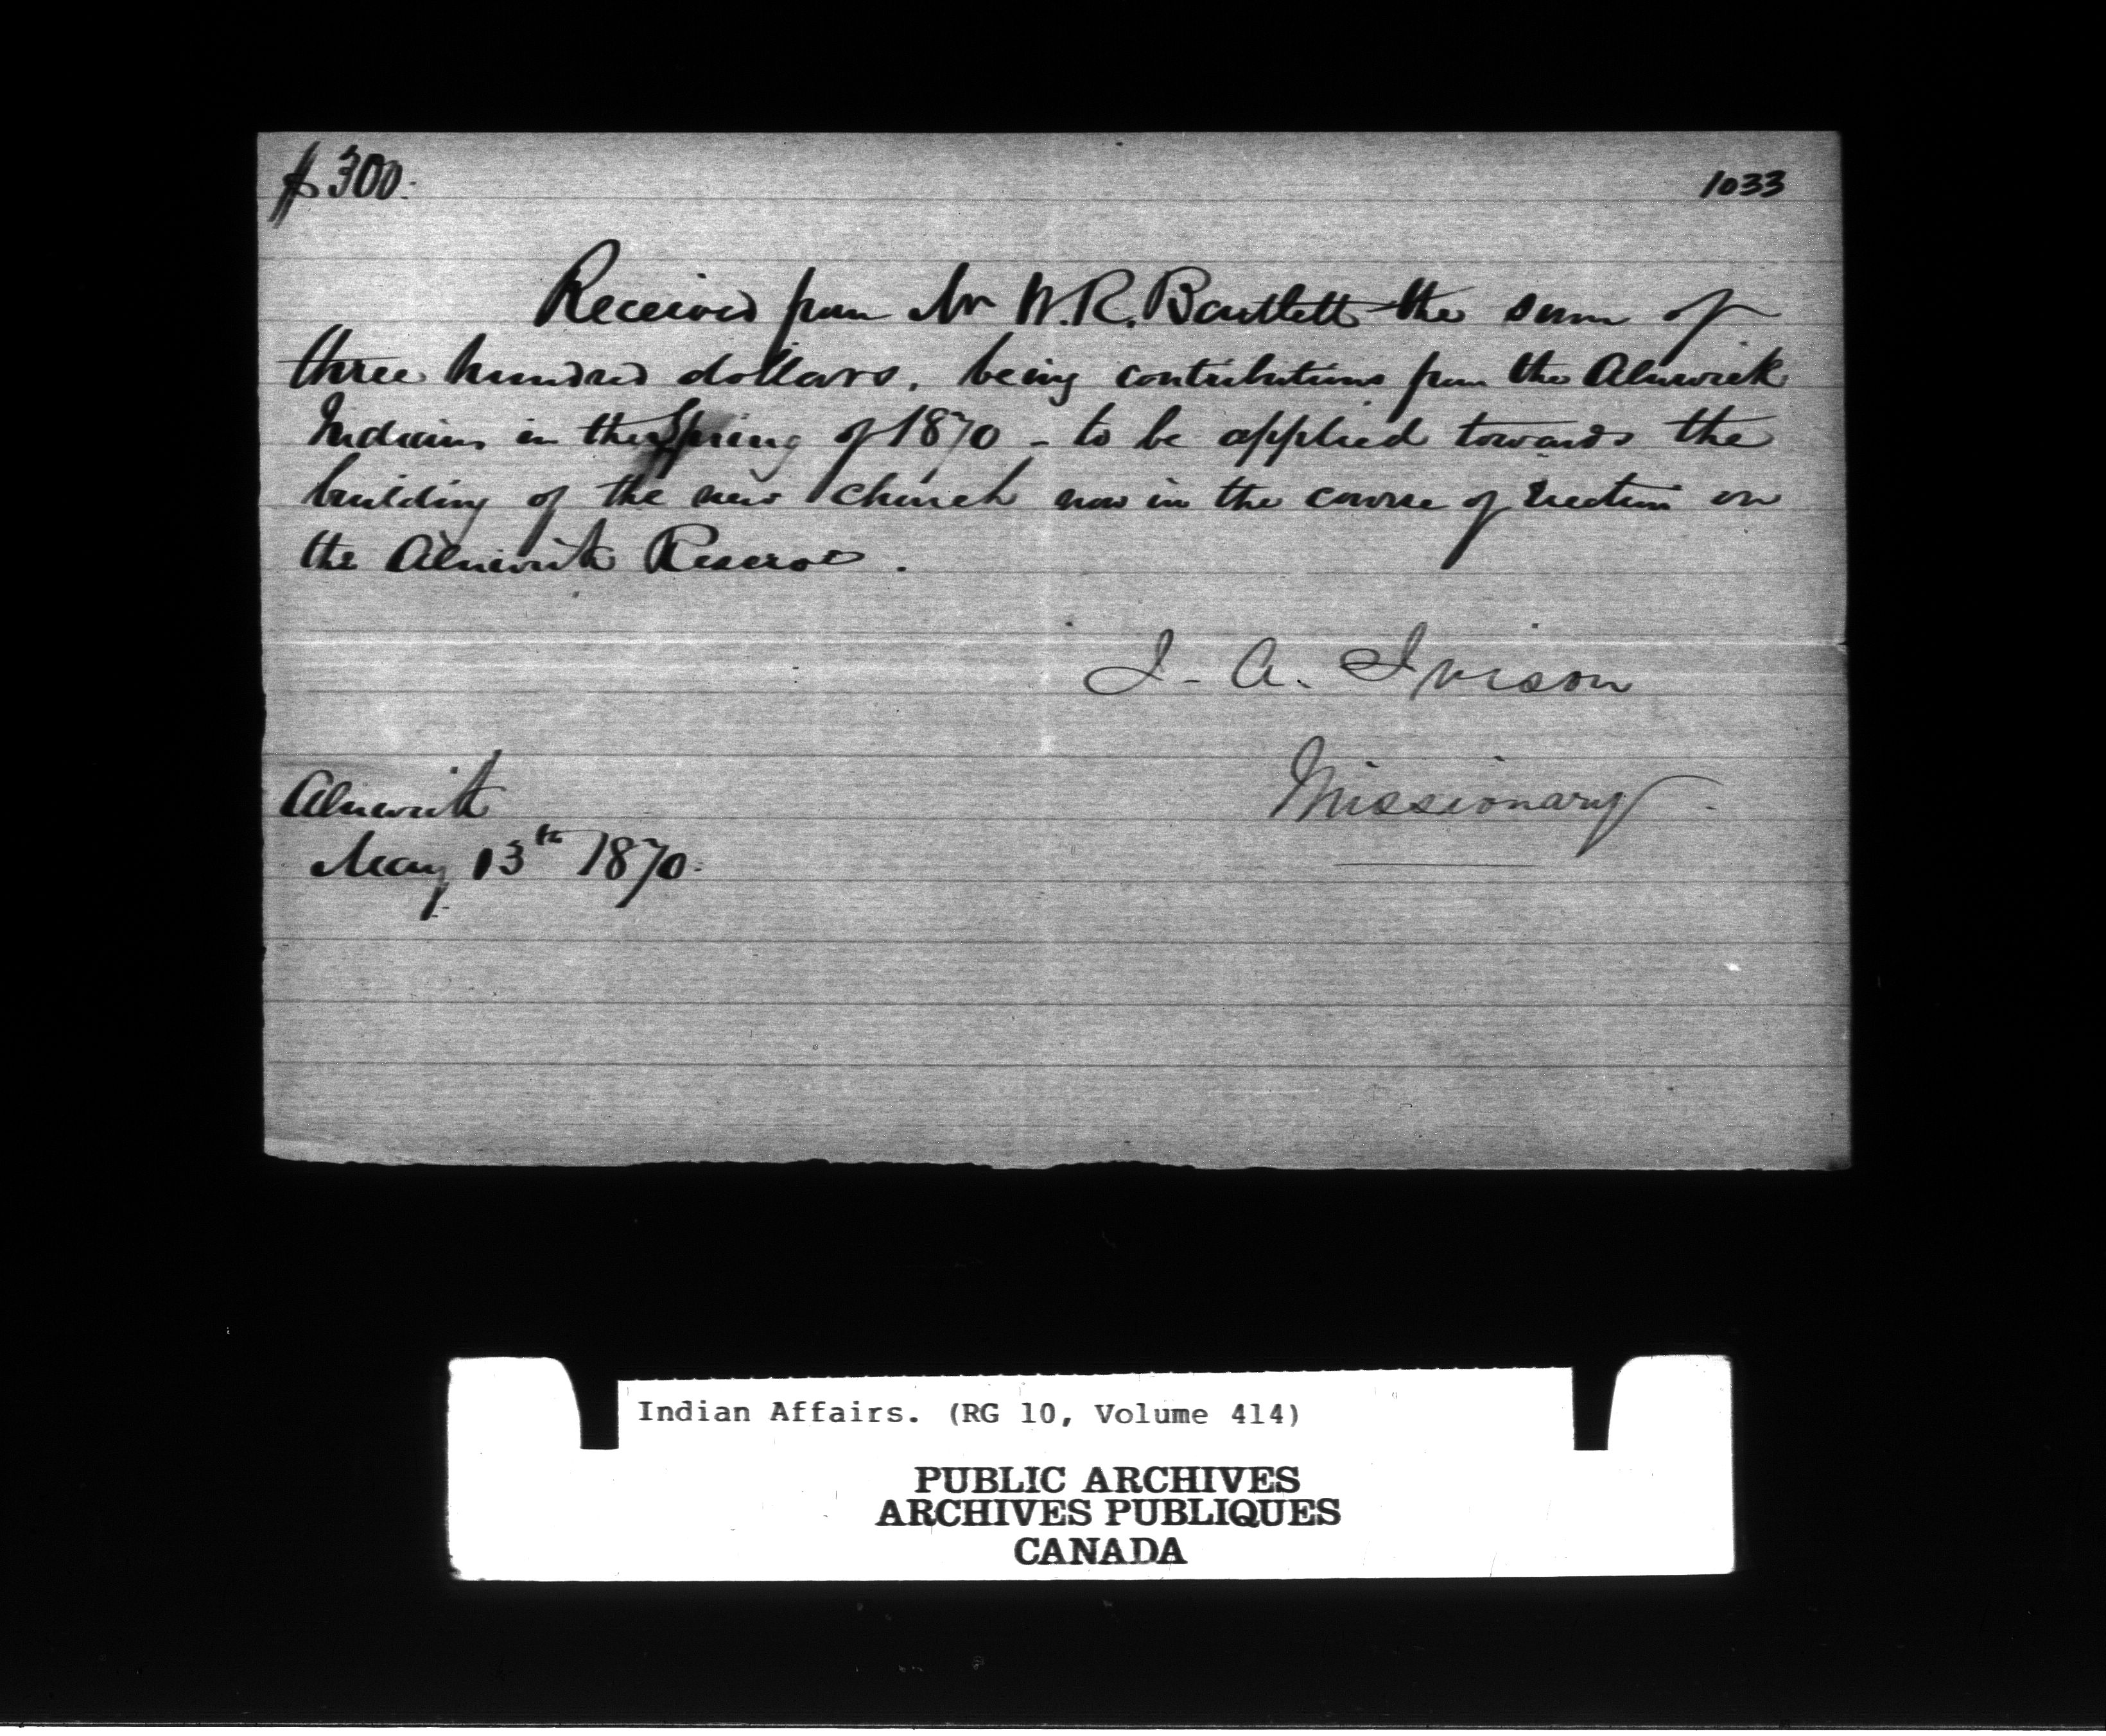 $300.
1033
Received from Mr W.R. Bartlett the sum of
three hundred dollars, being contributions from the Alnwick
Indians in the Spring of 1870 - to be applied towards the
building of the new church now in the course of erection on
the Alnwick Reserve.
J. A. Ivison
Missionary.
Alnwick
May 13th 1870.
Indian Affairs. (RG 10, Volume 414)
PUBLIC ARCHIVES
ARCHIVES PUBLIQUES
CANADA